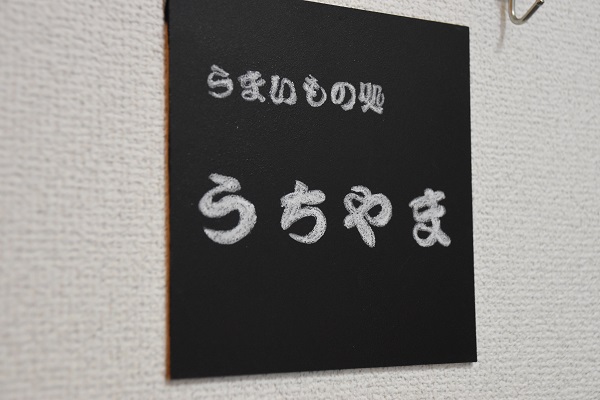 うまいもの処
うちやま